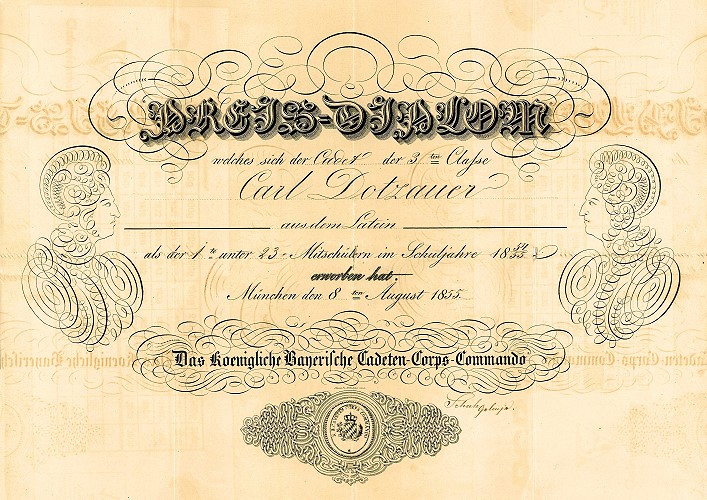 PREIS-DIPLOM
welches sich der Cadet der 3ten Classe
Carl Dotzauer
aus dem Latein
als der 1te unter 23 Mitschülern im Schuljahre 1854/55
erworben hat.
München den 8ten August 1855.
Das Koenigliche Bayerische Cadeten-Corps-Commando